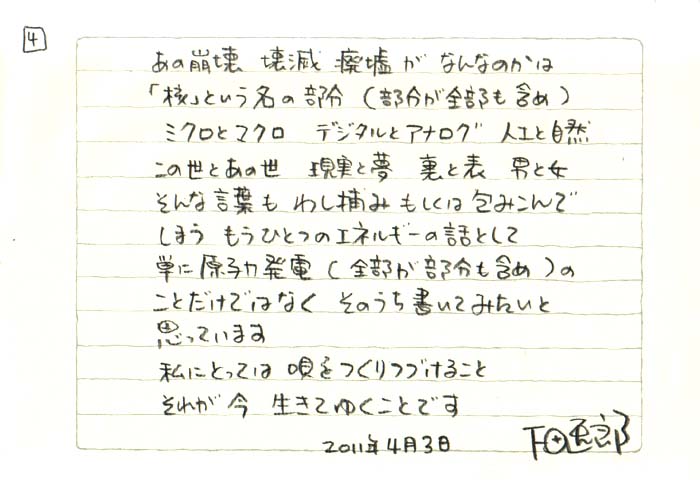 4
あの崩壊 壊滅 廃墟が なんなのかは
「核」という名の部分 (部分が全部も含め)
ミクロとマクロ デジタルとアナログ 人工と自然
この世とあの世 現実と夢 裏と表 男と女
そんな言葉も わし掴み もしくは包みこんで
しまう もうひとつのエネルギーの話として
単に原子力発電 (全部が部分も含め)の
ことだけではなく そのうち書いてみたいと
思っています
私にとっては 唄をつくりつづけること
それが今 生きてゆくことです
2011年4月3日 下田逸郎